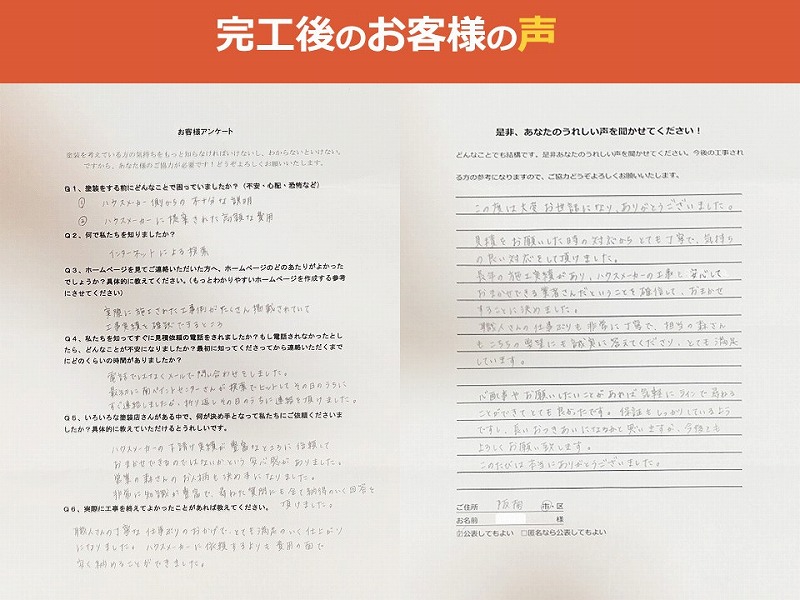 完工後のお客様の声
お客様アンケート
塗装を考えている方の気持ちをもっと知らなければいけないし、わからないといけない。
ですから、あなた様のご協力が必要です！どうぞよろしくお願いいたします。
Q1、塗装をする前にどんなことで困っていましたか？（不安・心配・恐怖など）
① ハウスメーカー側からの不十分な説明
② ハウスメーカーに提案された高額な費用
Q2、何で私たちを知りましたか？
インターネットによる検索
Q3、ホームページを見てご連絡いただいた方へ、ホームページのどのあたりがよかった
でしょうか？具体的に教えてください。（もっとわかりやすいホームページを作成する参考
にさせてください）
実際に施工された工事例がたくさん掲載されていて
工事実績を確認できるところ
Q4、私たちを知ってすぐに見積依頼の電話をされましたか？もし電話されなかったとし
たら、どんなことが不安になりましたか？最初に知ってくださってから連絡いただくまで
にどのくらいの時間がありましたか？
電話ではなくメールで問い合わせをしました。
最初に南ペイントセンターさんが検索でヒットしてその日のうちに
すぐ連絡しましたが、折り返しその日のうちに連絡を頂けました。
Q5、いろいろな塗装店さんがある中で、何が決め手となって私たちにご依頼くださいま
したか？具体的に教えていただけるとうれしいです。
ハウスメーカーの下請け実績が豊富なところに依頼して
おまかせできるのではないかという安心感がありました。
営業の森さんのお人柄も決め手になりました。
非常に知識が豊富で、尋ねた質問にも全て納得のいく回答を
頂けました。
Q6、実際に工事を終えてよかったことがあれば教えてください。
職人さんの丁寧な仕事ぶりのおかげで、とても満足のいく仕上がり
になりました。ハウスメーカーに依頼するよりも費用の面で
安く納めることができました。
是非、あなたのうれしい声を聞かせてください！
どんなことでも結構です。是非あなたのうれしい声を聞かせてください。今後の工事され
る方の参考になりますので、ご協力どうぞよろしくお願いいたします。
この度は大変お世話になり、ありがとうございました。
見積をお願いした時の対応からとても丁寧で、気持ち
の良い対応をして頂けました。
長年の施工実績があり、ハウスメーカーの工事と安心して
おまかせできる業者さんだということを確信して、おまかせ
することに決めました。
職人さんの仕事ぶりも非常に丁寧で、担当の森さん
もこちらの要望にも誠実に答えてくださり、とても満足
しています。
心配事やお願いしたいことがあれば気軽にラインで尋ねる
ことができてとても良かったです。保証もしっかりしているよう
ですし、長いおつきあいになるかと思いますが、今後とも
よろしくお願い致します。
このたびは本当にありがとうございました。
ご住所 阪南 市・区
お名前 様
☑公表してもよい □匿名なら公表してもよい